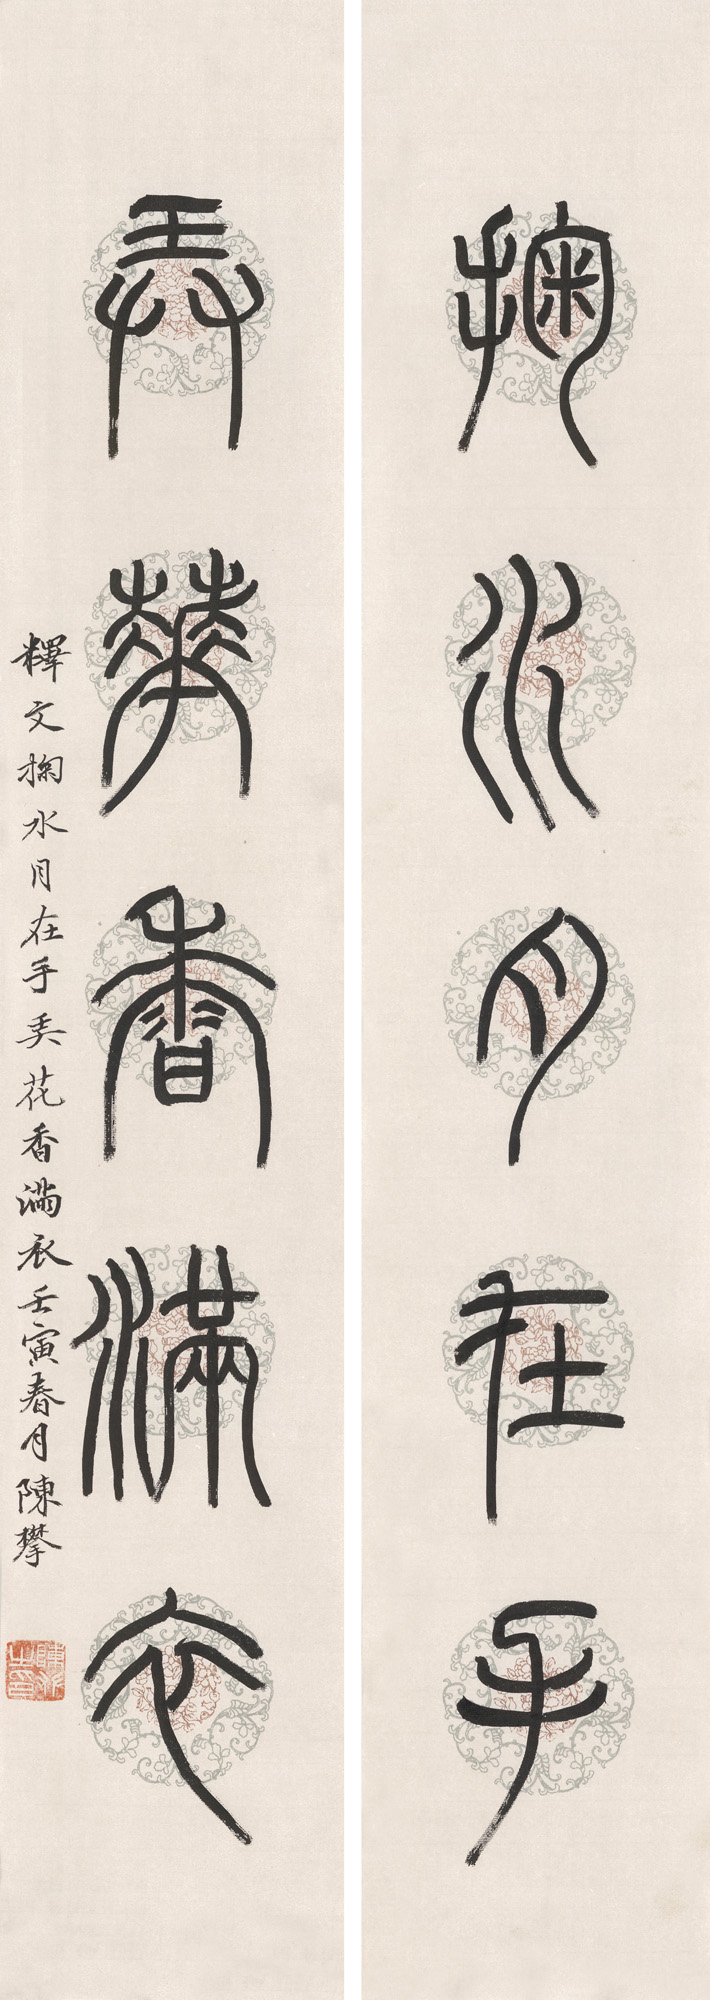 掬水月在手
弄華香滿衣
釋文掬水月在手弄花香滿衣壬寅春月陳攀